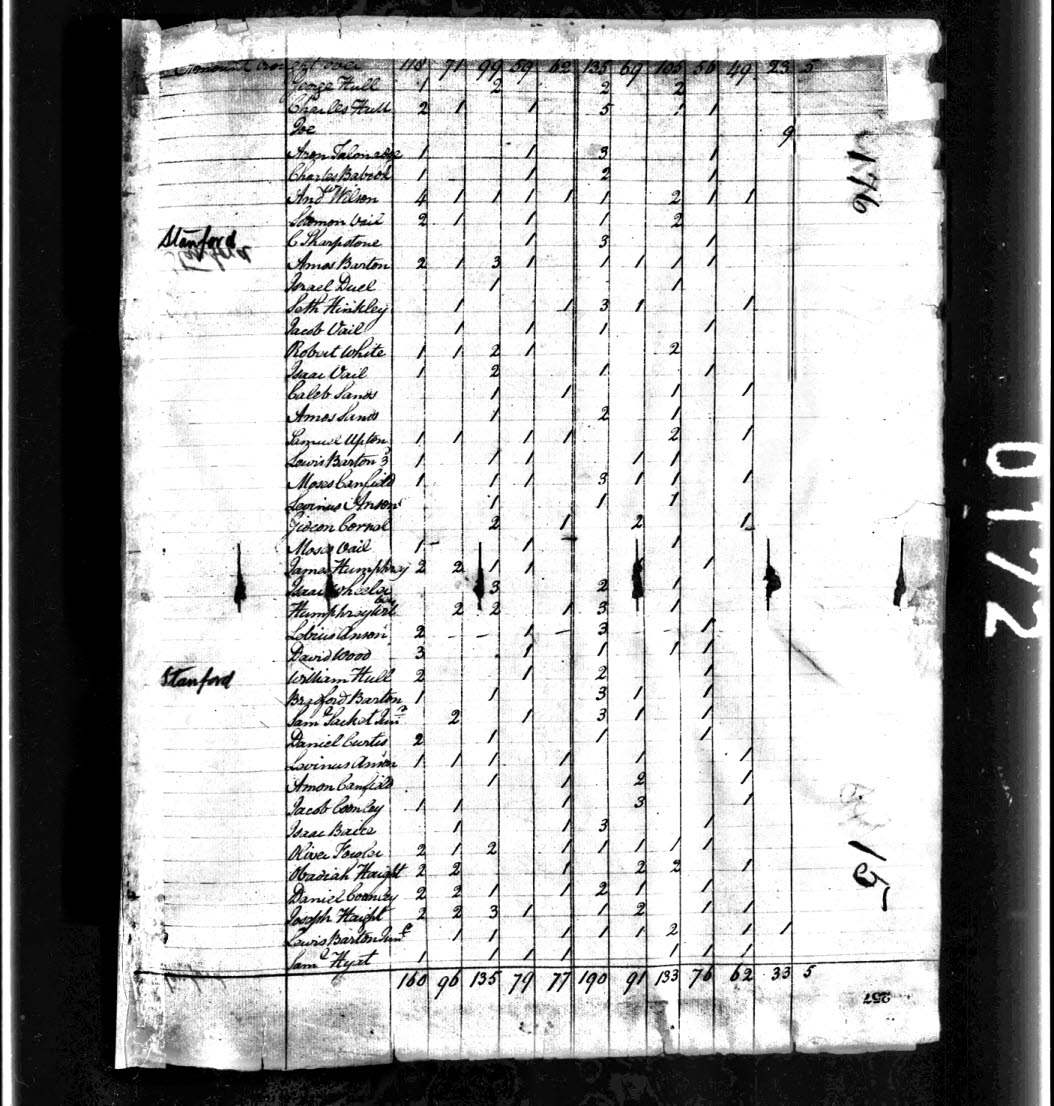 Amount brought over 118 71 99 59 62 135 69 105 56 49 23 5
George Hull 1 2 2 2
Charles Hull 2 1 1 5 1 1
Joe 9
Aron Talmadge 1 1 3 1
Charles Babcock 1 1 2 1
And.w Wilson 4 1 1 1 1 1 2 1 1
Solomon Vail 2 1 1 1 2
Stanford
C Sharpstone 1 3 1
Amos Barton 2 1 3 1 1 1 1 1
Israel Duel 1 1
Seth Hinkley 1 1 3 1 1
Jacob Vail 1 1 1 1
Robert White 1 1 2 1 2
Isaac Vail 1 2 1 1
Caleb Sands 1 1 1 1
Amos Sands 1 2 1
Samuel Upton 1 1 1 1 2 1
Lewis Barton 3d 1 1 1 1 1
Moses Canfield 1 1 1 3 1 1 1
Levinus Anson 1 1 1
Gideon Cornal 2 1 2 1
Moses Vail 1 1 1
James Humphrey 2 2 1 1 1
Isaac Wheeler 3 2 1
Humphrey 2 2 1 3 1
Anson 2 1 3 1
David Wood 3 1 1 1 1
Stanford
William Hull 2 1 2 1
Bradford Barton 1 1 3 1 1
Sam.l Sacket Jun.r 2 1 3 1 1
Daniel Curtis 2 1 1 1
Levinus Anson 1 1 1 1 1 1
Amon Canfield 1 1 2 1
Jacob Coonley 1 1 1 3 1
Isaac 1 1 3 1
Oliver Fowler 2 1 2 1 1 1 1 1
Obadiah Haight 2 2 1 2 2 1
Daniel Coonley 2 2 1 1 2 1 1
Joseph Haight 2 2 3 1 1 2 1 1
Lewis Barton Jun.r 1 1 1 1 1 2 1 1
Sam.l Hyat 1 1 1 1 1 1 1
160 96 135 79 77 190 91 133 76 62 33 5
257
0172